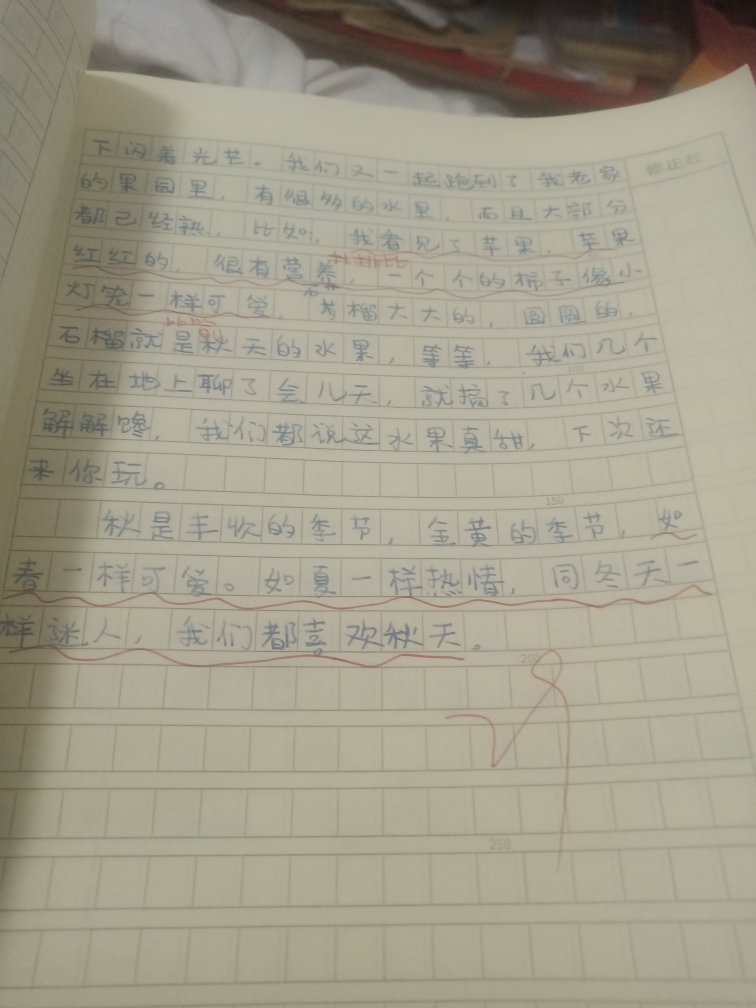 修正栏
下闪着光芒。我们又一起跑到了我老家
的果园里,有很多的水果,而且大部分
都已经熟,比如:我看见了苹果,苹果
红红的,很有营养,一个个的柿子像小
灯笼一样可爱,石榴大大的,圆圆的,
石榴就是秋天的水果,等等,我们几个
100
坐在地上聊了会儿天,就摘了几个水果
解解馋,我们都说这水果真甜,下次还
来你玩。
150
秋是丰收的季节,金黄的季节,如
春一样可爱。如夏一样热情,同冬天一
样迷人,我们都喜欢秋天。
200
250